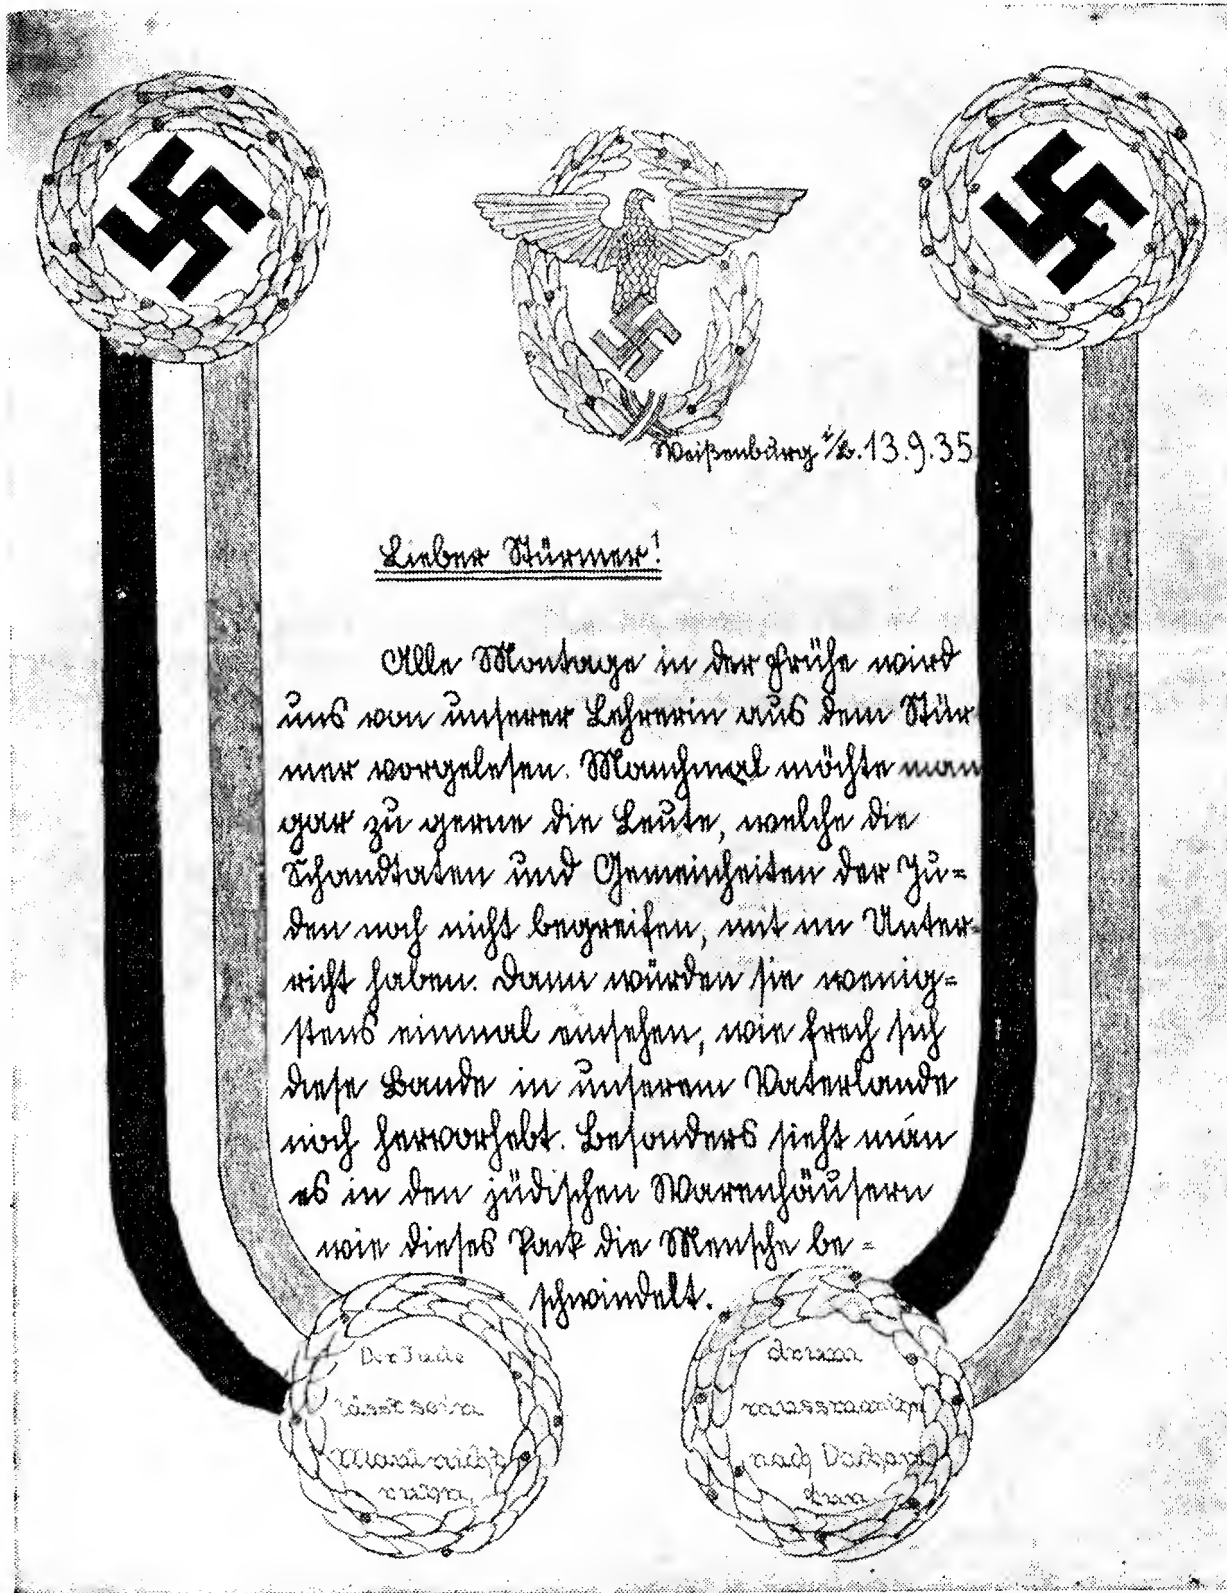 Weißenburg i/B. 13.9.35
Lieber Stürmer!
Alle Montage in der Frühe wird
uns von unserer Lehrerin aus dem Stür
mer vorgelesen. Manchmal möchte man
gar zu gerne die Leute, welche die
Schandtaten und Gemeinheiten der Ju=
den noch nicht begreifen, mit im Unter-
richt haben. Dann würden sie wenig=
stens einmal einsehen, wie frech sich
diese Bande in unserem Vaterlande
noch hervorhebt. Besonders sieht man
es in den jüdischen Warenhäusern
wie dieses Pack die Mensche be=
schwindelt.
Der Jude
lässt sein
Maul nicht
ruhn,
drum
muss man ihn
nach Dachau
tun